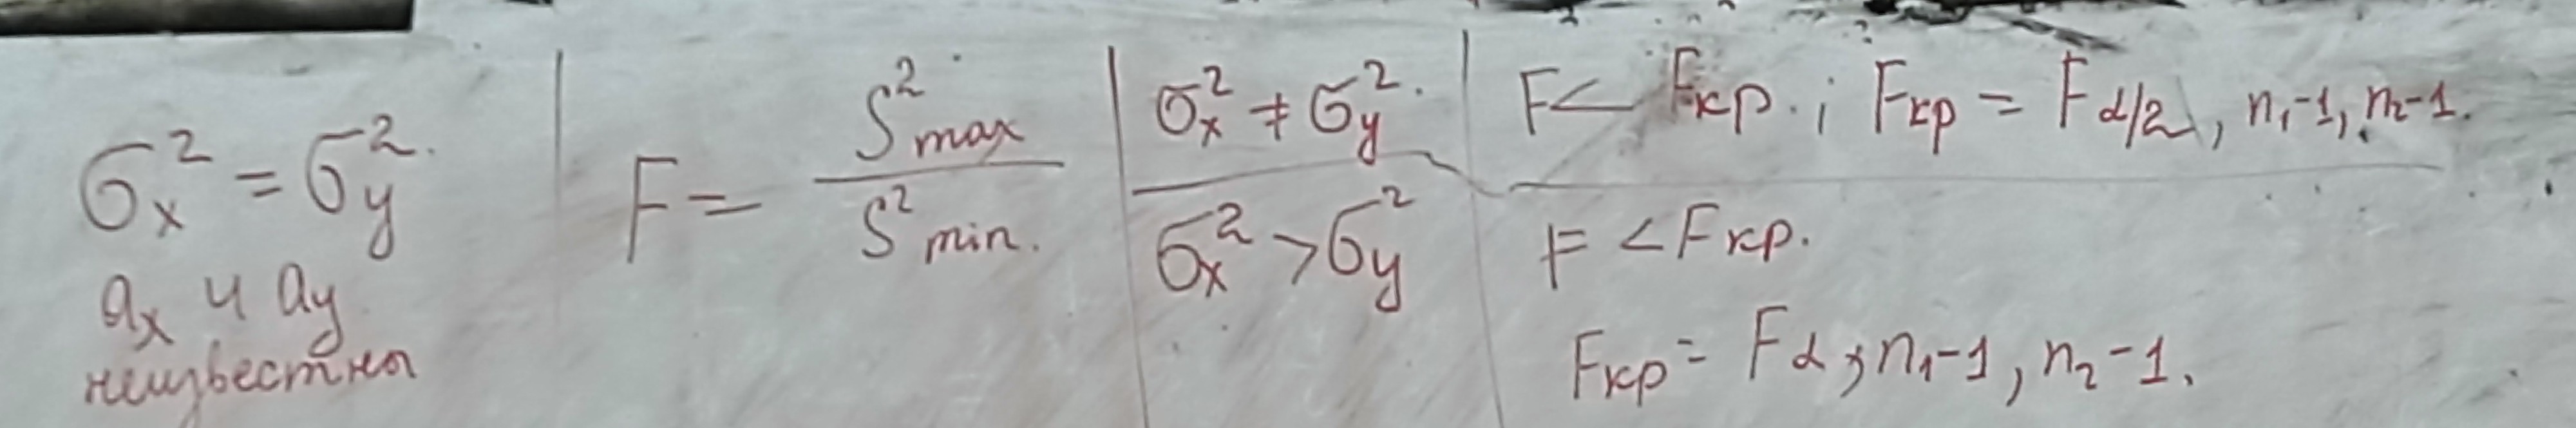 σ²ₓ = σ²ᵧ.
aₓ и aᵧ
неизвестны
F = S²max / S²min.
σ²ₓ ≠ σ²ᵧ.
σ²ₓ > σ²ᵧ
F < Fкр. ; Fкр = Fα/2, n₁-1, n₂-1.
F < Fкр.
Fкр = Fα, n₁-1, n₂-1.